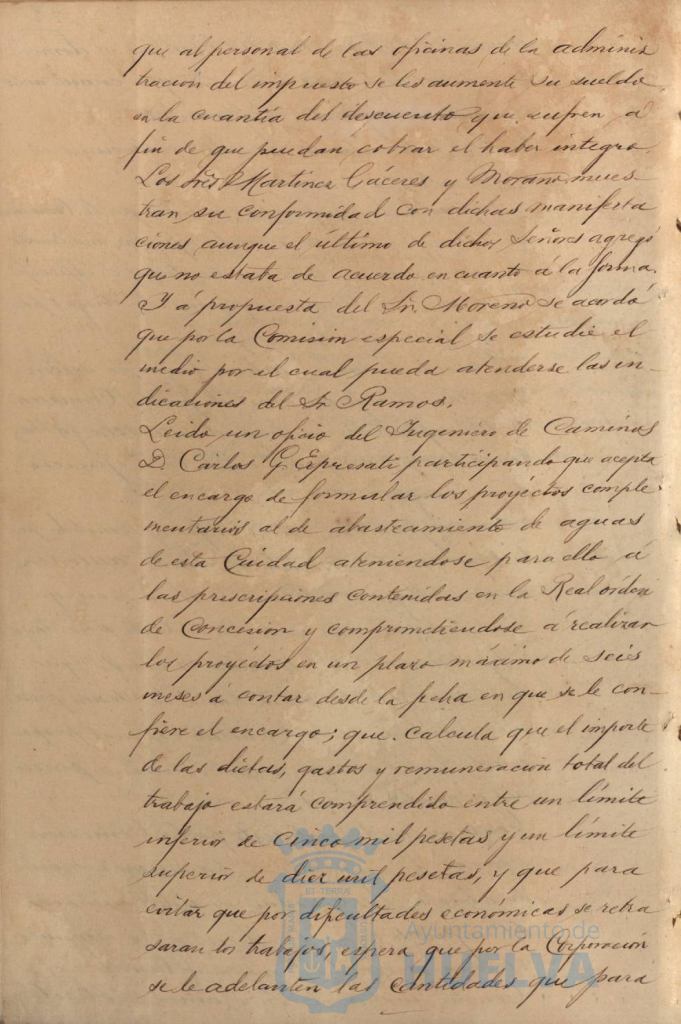 que al personal de las oficinas de la adminis
tracion del impuesto se les aumente su sueldo
en la cuantía del descuento que sufren á
fin de que puedan cobrar el haber integro.
Los Sres Martinez Cáceres y Morano mues
tran su conformidad con dichas manifesta
ciones aunque el último de dichos Señores agregó
que no estaba de acuerdo en cuanto á la forma.
Y á propuesta del Sr. Moreno se acordó
que por la Comision especial se estudie el
medio por el cual pueda atenderse las in-
dicaciones del Sr Ramos.
Leido un oficio del Ingeniero de Caminos
D. Carlos G. Espresati participando que acepta
el encargo de formular los proyectos comple
mentarios al de abastecimiento de aguas
de esta Ciudad ateniendose para ello á
las prescripciones contenidas en la Real orden
de Concesion y comprometiendose á realizar
los proyectos en un plazo máximo de seis
meses á contar desde la fecha en que se le con-
fiere el encargo; que calcula que el importe
de las dietas, gastos y remuneracion total del
trabajo estará comprendido entre un límite
inferior de cinco mil pesetas y un límite
superior de diez mil pesetas, y que para
evitar que por dificultades económicas se retra
saran los trabajos, espera que por la Corporación
se le adelanten las cantidades que para
Ayuntamiento de
HUELVA